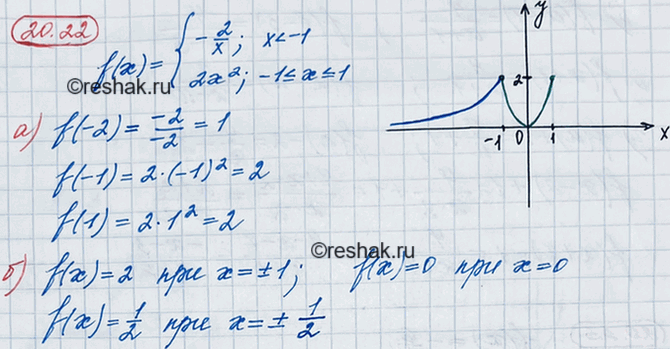 20.22
f(x)= { -2/x; x<-1
2x²; -1≤x≤1
©reshak.ru
y
2
-1 0 1 x
а) f(-2)= -2/-2 =1
f(-1)=2·(-1)²=2
f(1)=2·1²=2
©reshak.ru
б) f(x)=2 при x=±1; f(x)=0 при x=0
f(x)=1/2 при x=± 1/2